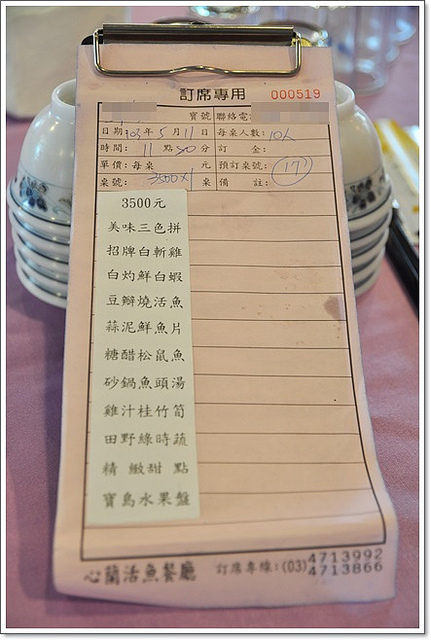 訂席專用 000519
寶號 聯絡電
日期:103年5月11日 每桌人數:10人
時間: 11 點30分 訂 金:
單價:每桌 元 預訂桌號: 17
桌號: 3500X1 桌 備 註:
3500元
美味三色拼
招牌白斬雞
白灼鮮白蝦
豆瓣燒活魚
蒜泥鮮魚片
糖醋松鼠魚
砂鍋魚頭湯
雞汁桂竹筍
田野綠時蔬
精緻甜點
寶島水果盤
心蘭活魚餐廳 訂席專線:(03)4713992
4713866